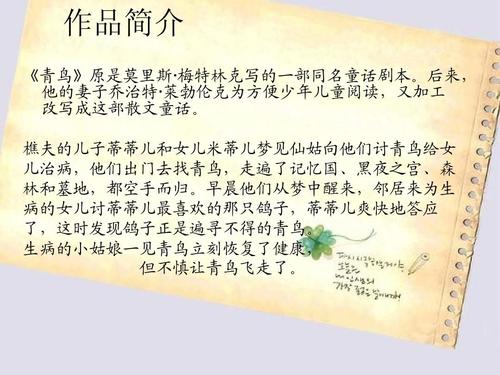 作品简介
《青鸟》原是莫里斯·梅特林克写的一部同名童话剧本。后来，
他的妻子乔治特·莱勃伦克为方便少年儿童阅读，又加工
改写成这部散文童话。
樵夫的儿子蒂蒂儿和女儿米蒂儿梦见仙姑向他们讨青鸟给女
儿治病，他们出门去找青鸟，走遍了记忆国、黑夜之宫、森
林和墓地，都空手而归。早晨他们从梦中醒来，邻居来为生
病的女儿讨蒂蒂儿最喜欢的那只鸽子，蒂蒂儿爽快地答应
了，这时发现鸽子正是遍寻不得的青鸟。
生病的小姑娘一见青鸟立刻恢复了健康，
但不慎让青鸟飞走了。